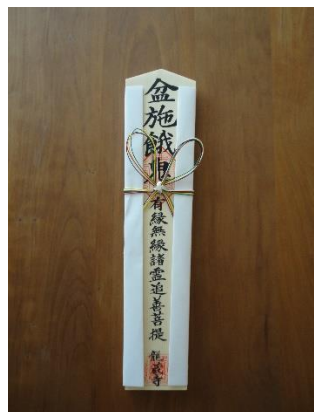 盆施餓鬼
有縁無縁諸霊追善菩提
龍蔵寺